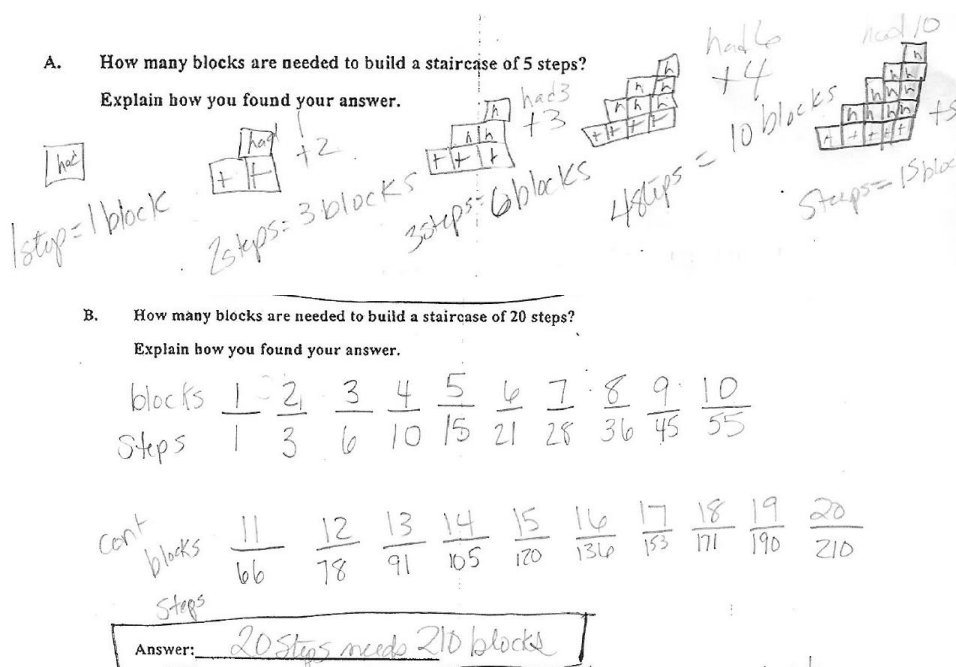 A. How many blocks are needed to build a staircase of 5 steps?
Explain how you found your answer.
had
1 step = 1 block
had
+ +
+2
2 steps = 3 blocks
h
h h
+ + +
had 3
+3
3 steps = 6 blocks
h
h h
h h h
+ + + +
had 6
+4
4 steps = 10 blocks
had 10
h
h h
h h h
h h h h
+ + + + +
+5
5 steps = 15 bloc
B. How many blocks are needed to build a staircase of 20 steps?
Explain how you found your answer.
blocks 1 2 3 4 5 6 7 8 9 10
steps 1 3 6 10 15 21 28 36 45 55
cont
blocks 11 12 13 14 15 16 17 18 19 20
66 78 91 105 120 136 153 171 190 210
steps
Answer: 20 steps needs 210 blocks